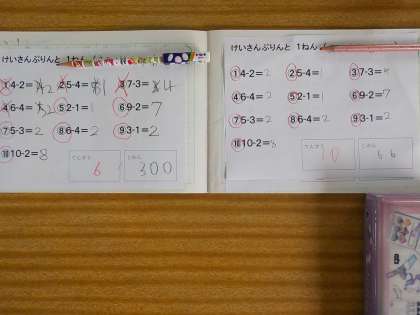 けいさんぷりんと 1ねん
①4-2=2
②5-4=1
③7-3=4
④6-4=2
⑤2-1=1
⑥9-2=7
⑦5-3=2
⑧6-4=2
⑨3-1=2
⑩10-2=8
てんすう
6
じかん
300
けいさんぷりんと 1ねん
①4-2=2
②5-4=
③7-3=4
④6-4=2
⑤2-1=1
⑥9-2=7
⑦5-3=2
⑧6-4=2
⑨3-1=2
⑩10-2=8
てんすう
10
じかん
66